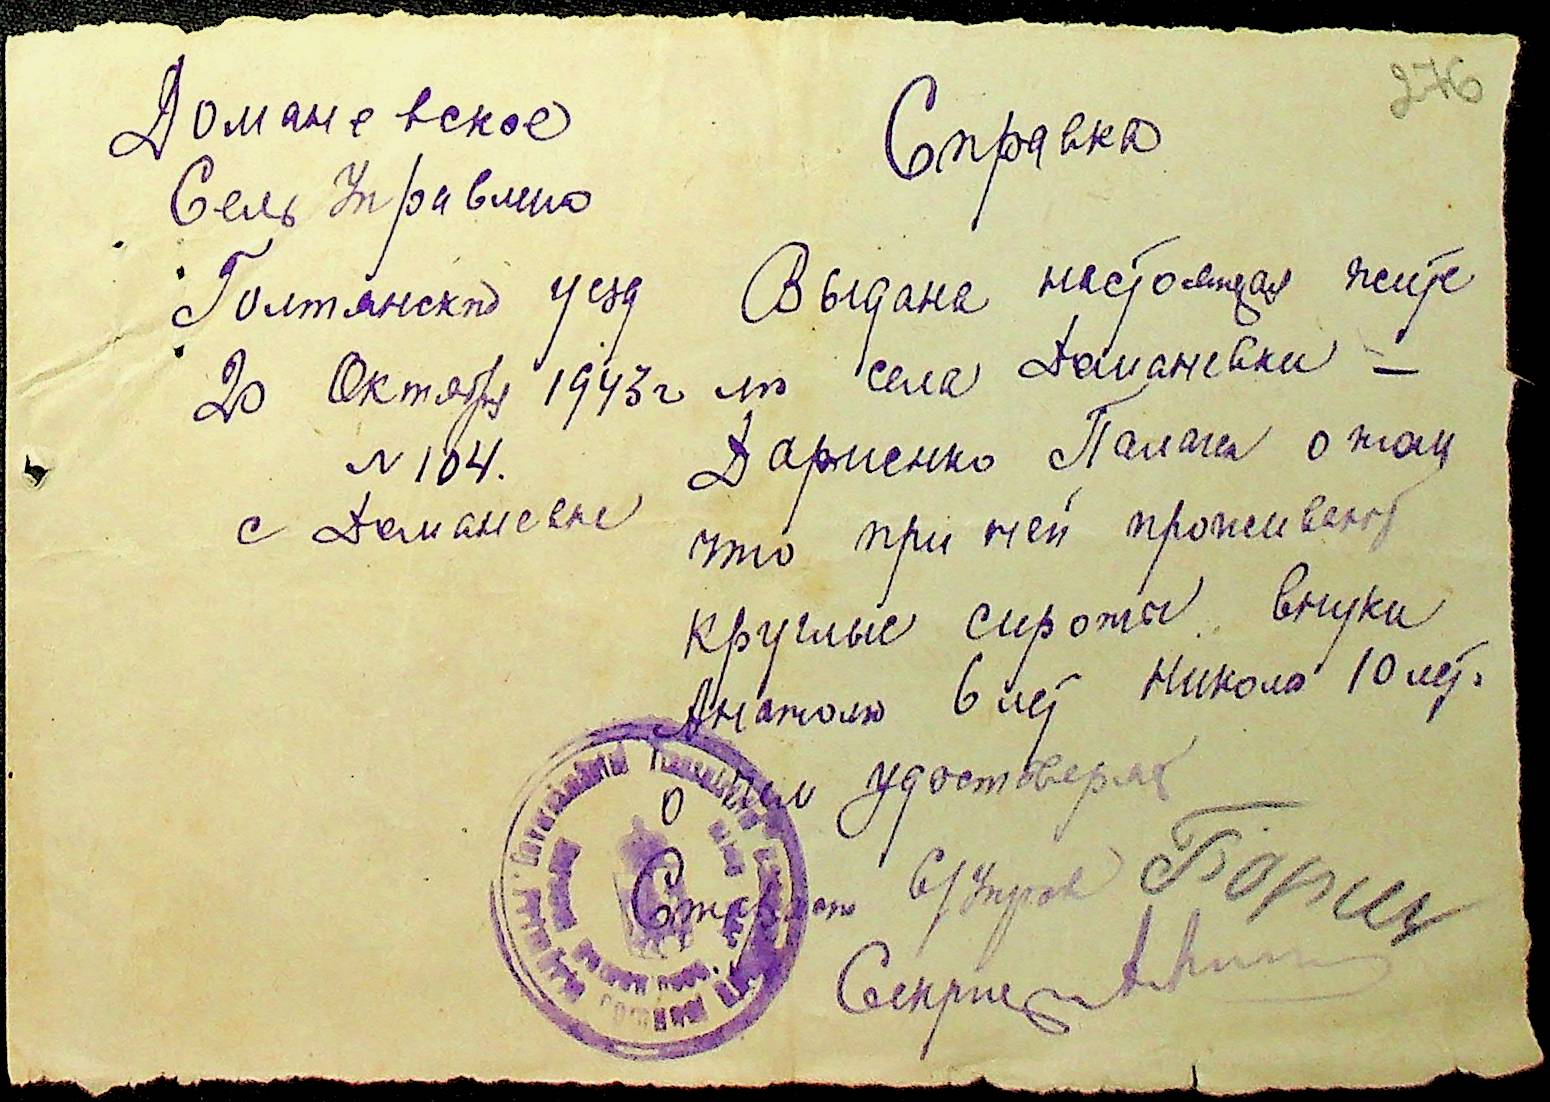 276
Домановское
Сель Управлию
Голтянского уезд
20 Октября 1943 г
№ 104.
с Доманевке
Справка
Выдана настоящая жите
лю села Доманевки —
Дариенко Палагеи о том
что при ней проживают
круглые сироты внуки
Анатолю 6 лет Николо 10 лет.
О чем удостверяе
Старост С/Управ
Секрет